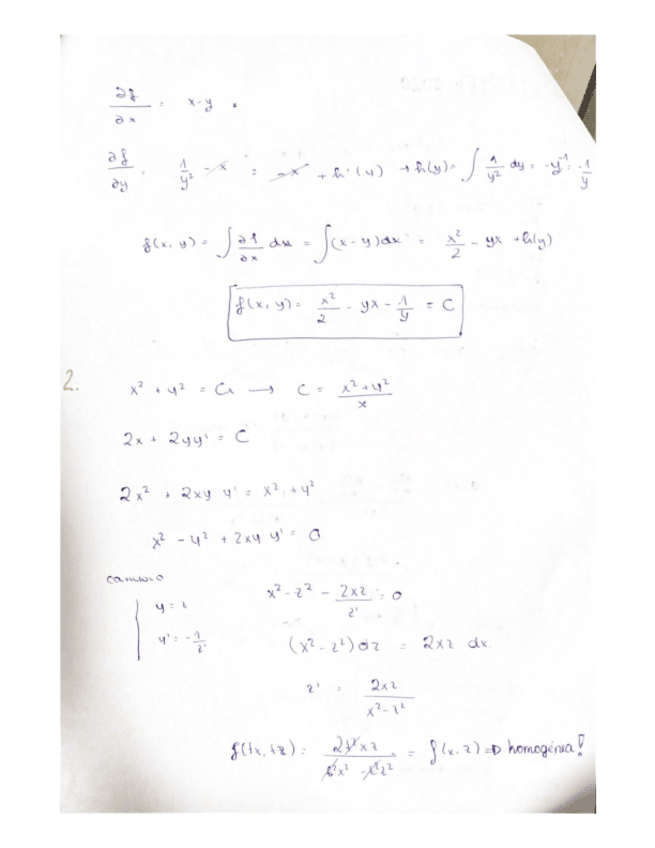 ∂f/∂x = x-y
∂f/∂y = 1/y² - x = -x + h'(y) → h(y) = ∫ 1/y² dy = -y⁻¹ = -1/y
f(x, y) = ∫ ∂f/∂x dx = ∫(x-y)dx = x²/2 - yx + h(y)
f(x, y) = x²/2 - yx - 1/y = C
2.
x² + y² = Cx → C = (x²+y²)/x
2x + 2yy' = C
2x² + 2xy y' = x² + y²
x² - y² + 2xy y' = 0
cambio
y = z
y' = -1/z'
x² - z² - 2xz/z' = 0
(x² - z²) dz = 2xz dx
z' = 2xz/(x²-z²)
f(tx, tz) = 2t²xz/(t²x² - t²z²) = f(x, z) ⇒ homogénea!